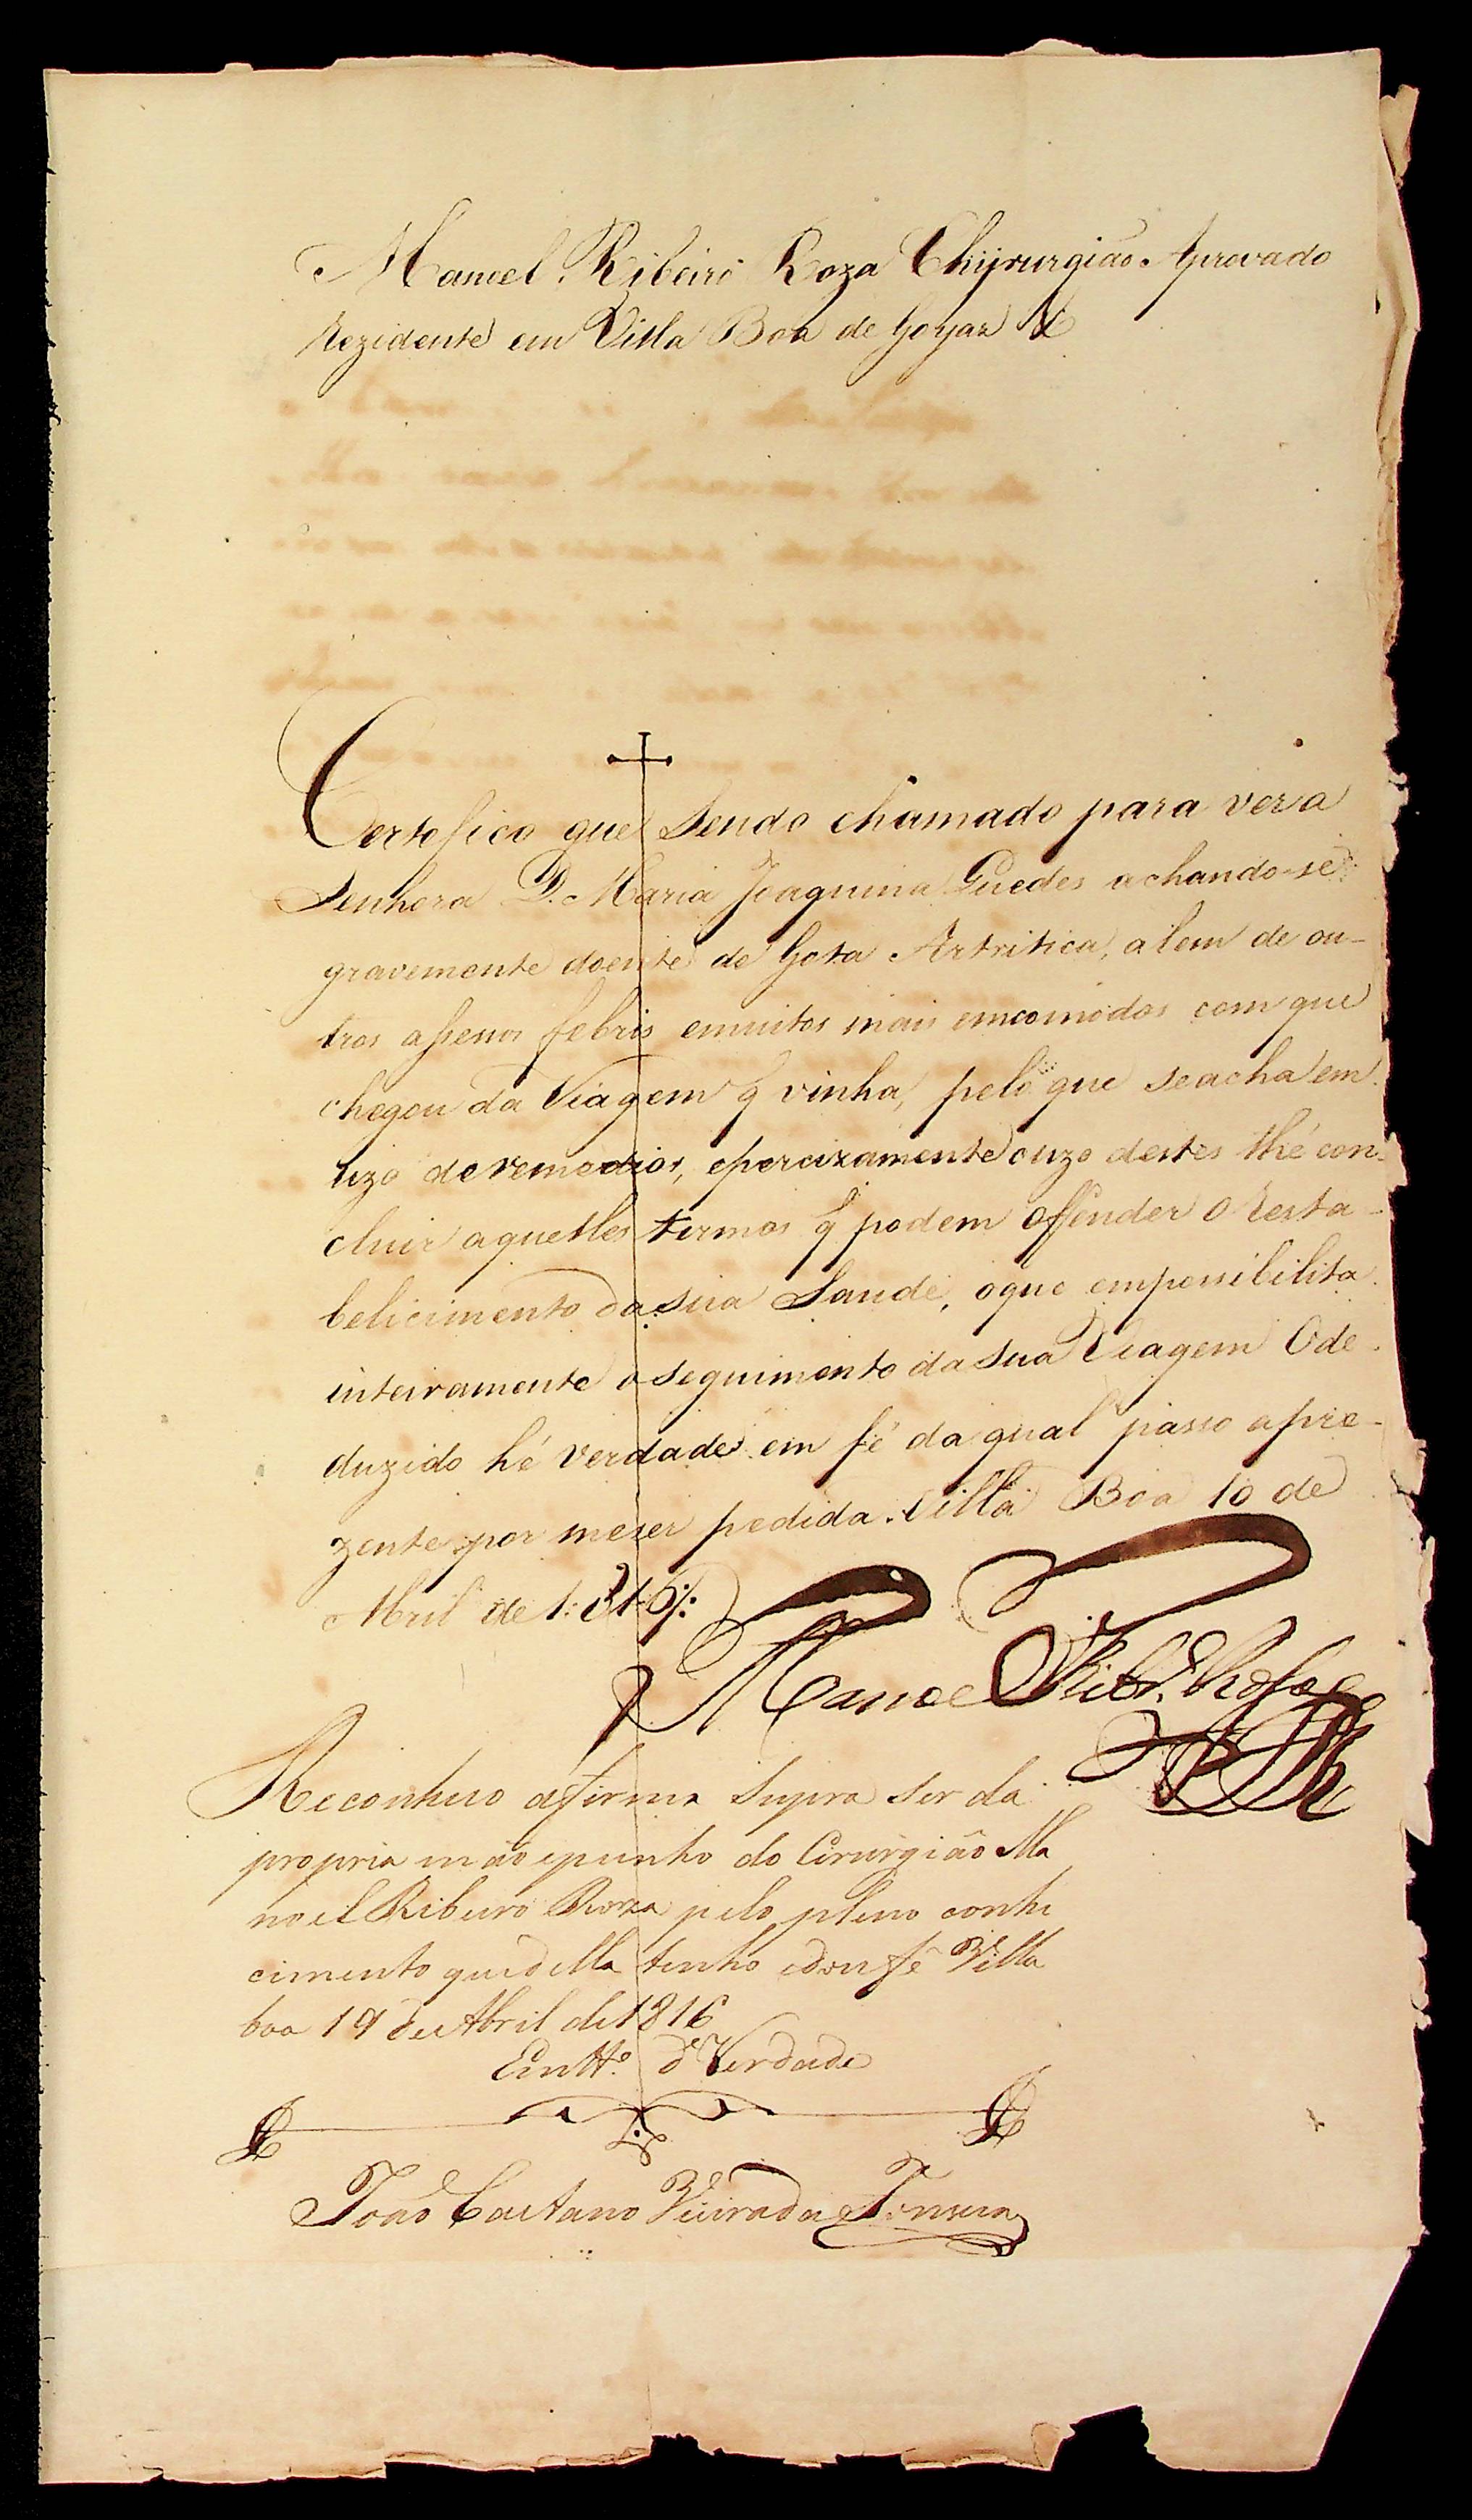 Manoel Ribeiro Roza Chijrurgião Aprovado
Rezidente em Villa Boa de Goyaz &
Certefico que Sendo chamado para ver a
Senhora D. Maria Joaquina Guedes achando-se
gravemente doente de Gota Artritica, alem de ou-
tros assenos febris emuitos mais emcomodos com que
chegou da Viagem q̃ vinha, pelo que seacha em
uzo deremedios, eperцizamente ouzo destes thé con-
cluir aquelles termos q̃ podem offender o Resta-
belicimento dasua Saude, oque empossibilita
inteiramente o seguimento dasua Viagem Ode-
duzido hé verdade em fé daqual passo apre-
zente por meser pedida. Villa Boa 10 de
Abril de 1816
Manoel Ribr.º Roza
Reconheso afirma Supra ser da
propria mão epunho do Cirurgião Ma
noel Ribeiro Roza pelo pleno conhe
cimento quedella tenho edou fé Villa
boa 19 de Abril de 1816
Em tt.º d Verdade
João Caetano Vieira da